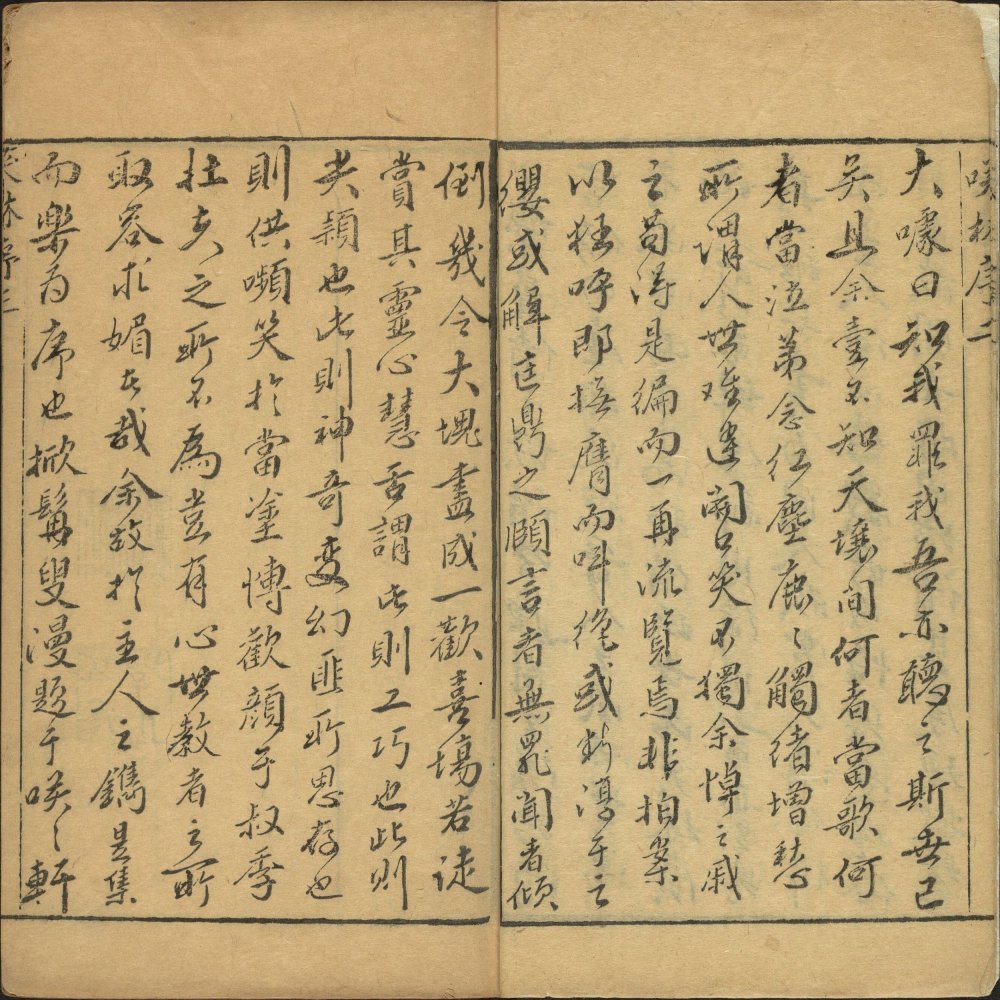 咲林序二
大噱曰知我罪我吾亦聽之斯世已
矣且余壹不知天壤间何者當歌何
者當泣第念紅塵鹿〻觸绪增愁
所謂人世难逢開口笑不獨余悼之戚
之苟得是编而一再流覽焉非拍案
以狂呼即撫膺而叫絶或析淳于之
纓或解匡鼎之頤言者無罪聞者傾
倒幾令大塊盡成一歡喜場若徒
賞其靈心慧舌謂此則工巧也此則
尖穎也此則神奇变幻匪所思存也
則供嚬笑於當塗博歡顔于叔季
壮夫之所不為豈有心世教者之所
取容求媚者哉余故於主人之鐫是集
而樂为序也掀髯叟漫题于咲〻軒
咲林序三